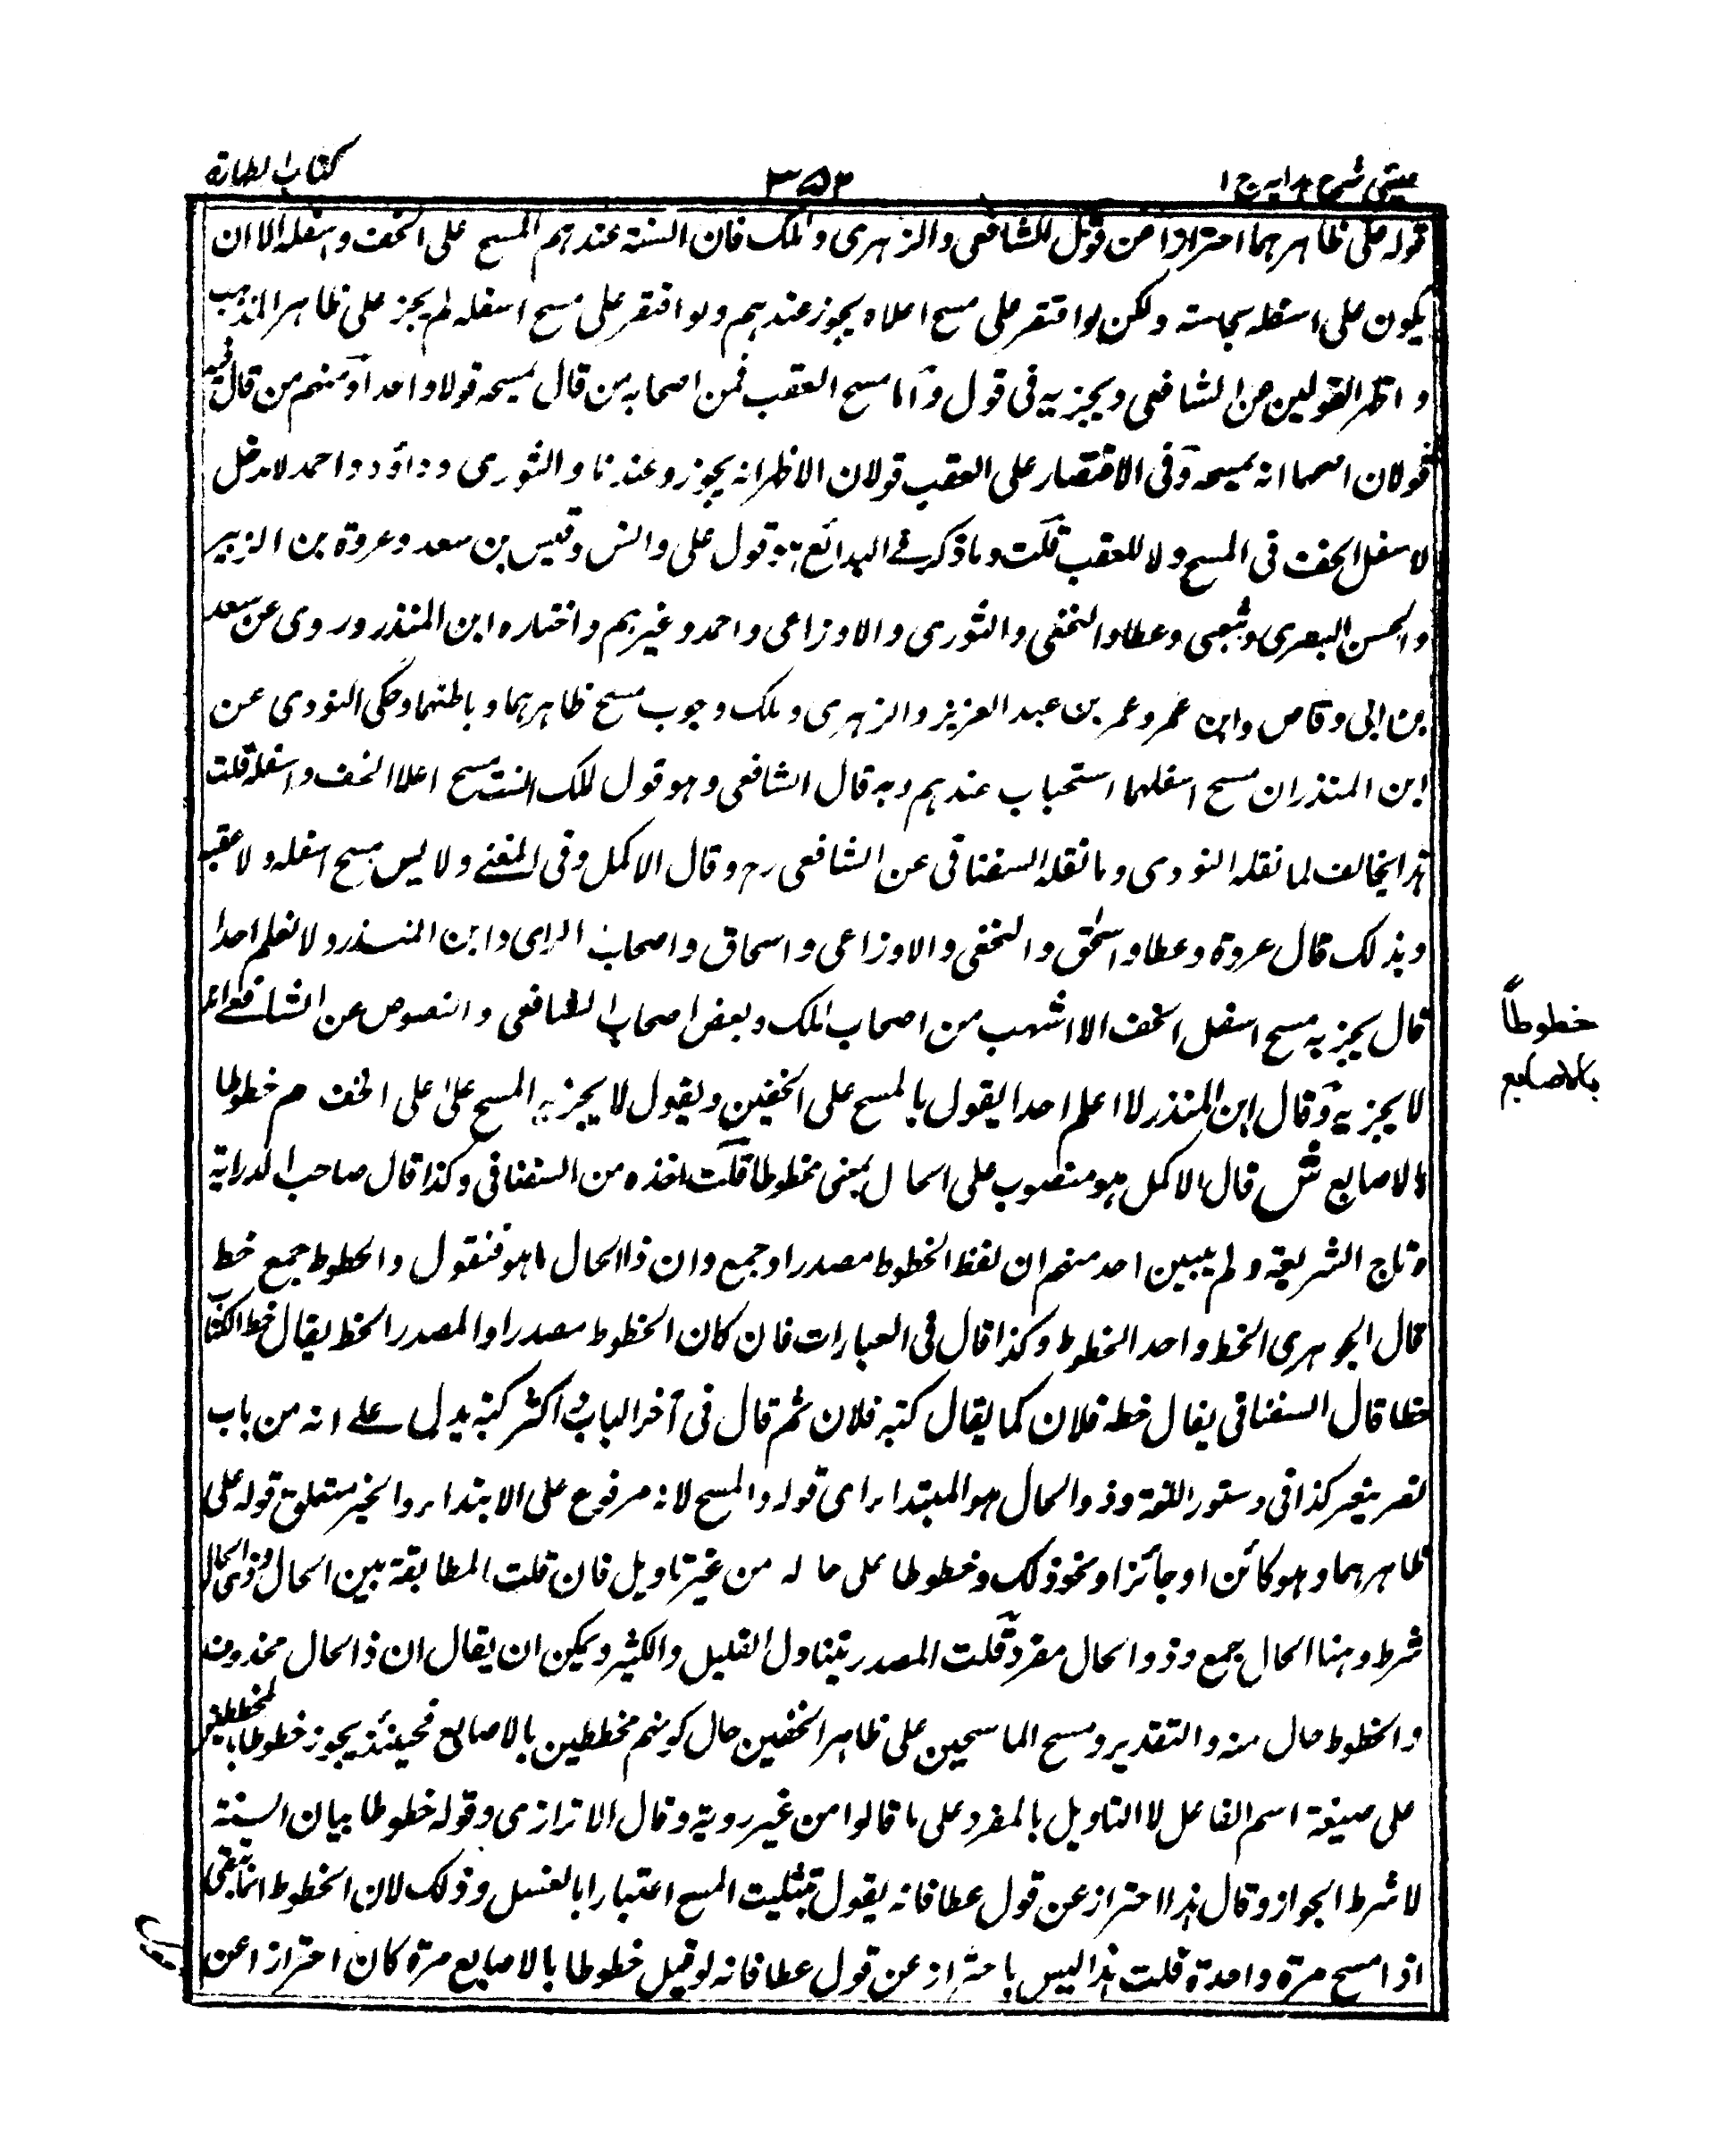 عينى شرح هدايه ج ١
٣٥٢
كتاب الطهارة
قوله على ظاهرهما احترازا عن قول الشافعى والزهرى ومالك فان السنة عندهم المسح على الخف واسفله الا ان
يكون على اسفله نجاسته ولكن لو اقتصر على مسح اعلاه يجوز عندهم ولو اقتصر على مسح اسفله لم يجز على ظاهر المذهب
واظهر القولين عن الشافعى ويجزيه فى قول واما مسح العقب فمن اصحابه من قال يمسحه قولا واحدا ومنهم من قال فيه
قولان اصحهما انه يمسحه وفى الاقتصار على العقب قولان الاظهر انه يجوز وعندنا والثورى وداؤد واحمد لا مدخل
لاسفل الخف فى المسح ولا للعقب قلت وما ذكر فے البدائع هو قول على وانس وقيس بن سعد وعروة بن الزبير
والحسن البصرى وشعبى وعطا والنخعى والثورى والاوزاعى واحمد وغيرهم واختاره ابن المنذر وروى عن سعد
بن ابى وقاص وابن عمر وعمر بن عبد العزيز والزهرى وملك وجوب مسح ظاهرهما وباطنهما وحكى النووى عن
ابن المنذر ان مسح اسفلهما استحباب عندهم وبه قال الشافعى وهو قول مالك السنة مسح اعلا الخف واسفله قلت
هذا يخالف لما نقله النووى وما نقله السغناقى عن الشافعى رح وقال الاكمل وفى المغنے ولا ليس مسح اسفله ولا عقبه
وبذلك قال عروة وعطا واسحٰق والنخعى والاوزاعى واسحاق واصحاب الراى وابن المنذر ولا نعلم احدا
قال يجزيه مسح اسفل الخف الا اشهب من اصحاب مالك وبعض اصحاب الشافعى والنصوص عن الشافعے انه
لا يجزيه وقال ابن المنذر لا اعلم احدا يقول بالمسح على الخفين ويقول لا يجزيه المسح على اعلى الخف م خطوطا
بالاصابع ش قال الاكمل هو منصوب على الحال بمعنى مخطوطا قلت اخذه من السغناقى وكذا قال صاحب الدراية
وتاج الشريعة ولم يبين احد منهم ان لفظ الخطوط مصدر او جمع وان ذا الحال ما هو فنقول والخطوط جمع خط
قال الجوهرى الخط واحد الخطوط وكذا قال فى العبارات فان كان الخطوط مصدرا والمصدر الخط يقال خط الكتاب
خطا قال السغناقى يقال خطه فلان كما يقال كتبه فلان ثم قال فى آخر الباب اكثر كتبه يدل علے انه من باب
نصر ينصر كذا فى دستور اللغة وذو الحال هو المبتدا اى قوله والمسح لانه مرفوع على الابتداء والخبر متعلق قوله على
ظاهرهما وهو كائن او جائز او نحو ذلك وخطوطا على حاله من غير تاويل فان قلت المطابقة بين الحال وذى الحال
شرط وهنا الحال جمع وذو الحال مفرد قلت المصدر يتناول القليل والكثير ويمكن ان يقال ان ذا الحال محذوف
والخطوط حال منه والتقدير ومسح الماسحين على ظاهر الخفين حال كونهم مخططين بالاصابع فحينئذ يجوز خطوطا بمخططين
على صيغة اسم الفاعل لا التاويل بالمفرد على ما قالوا من غير روية وقال الاترازى وقوله خطوطا بيان السنة
لا شرط الجواز وقال هذا احتراز عن قول عطا فانه يقول بتثليث المسح اعتبارا بالغسل وذلك لان الخطوط انما تبقى
اذا مسح مرة واحدة قلت هذا ليس باحتراز عن قول عطا فانه لو قيل خطوطا بالاصابع مرة كان احترازا عن
خطوطاً
بالاصابع